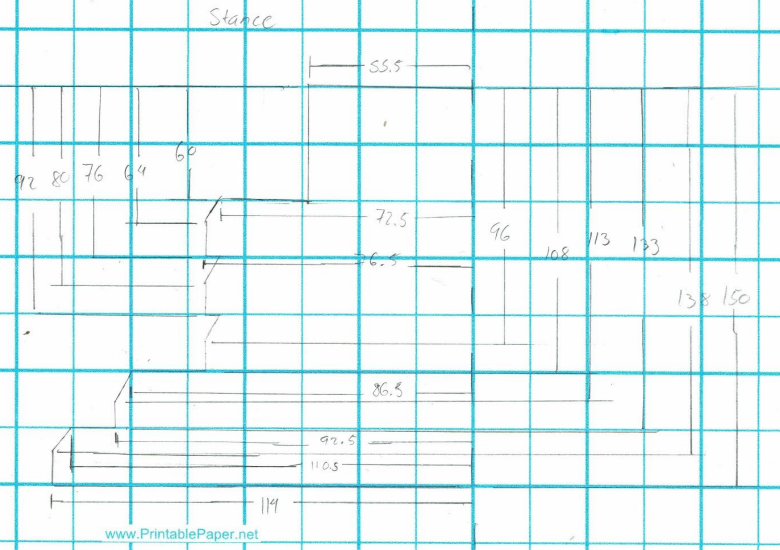 Stance
55.5
60
92 80 76 64
72.5
96
108 113 133
76.5
138 150
86.5
92.5
110.5
119
www.PrintablePaper.net